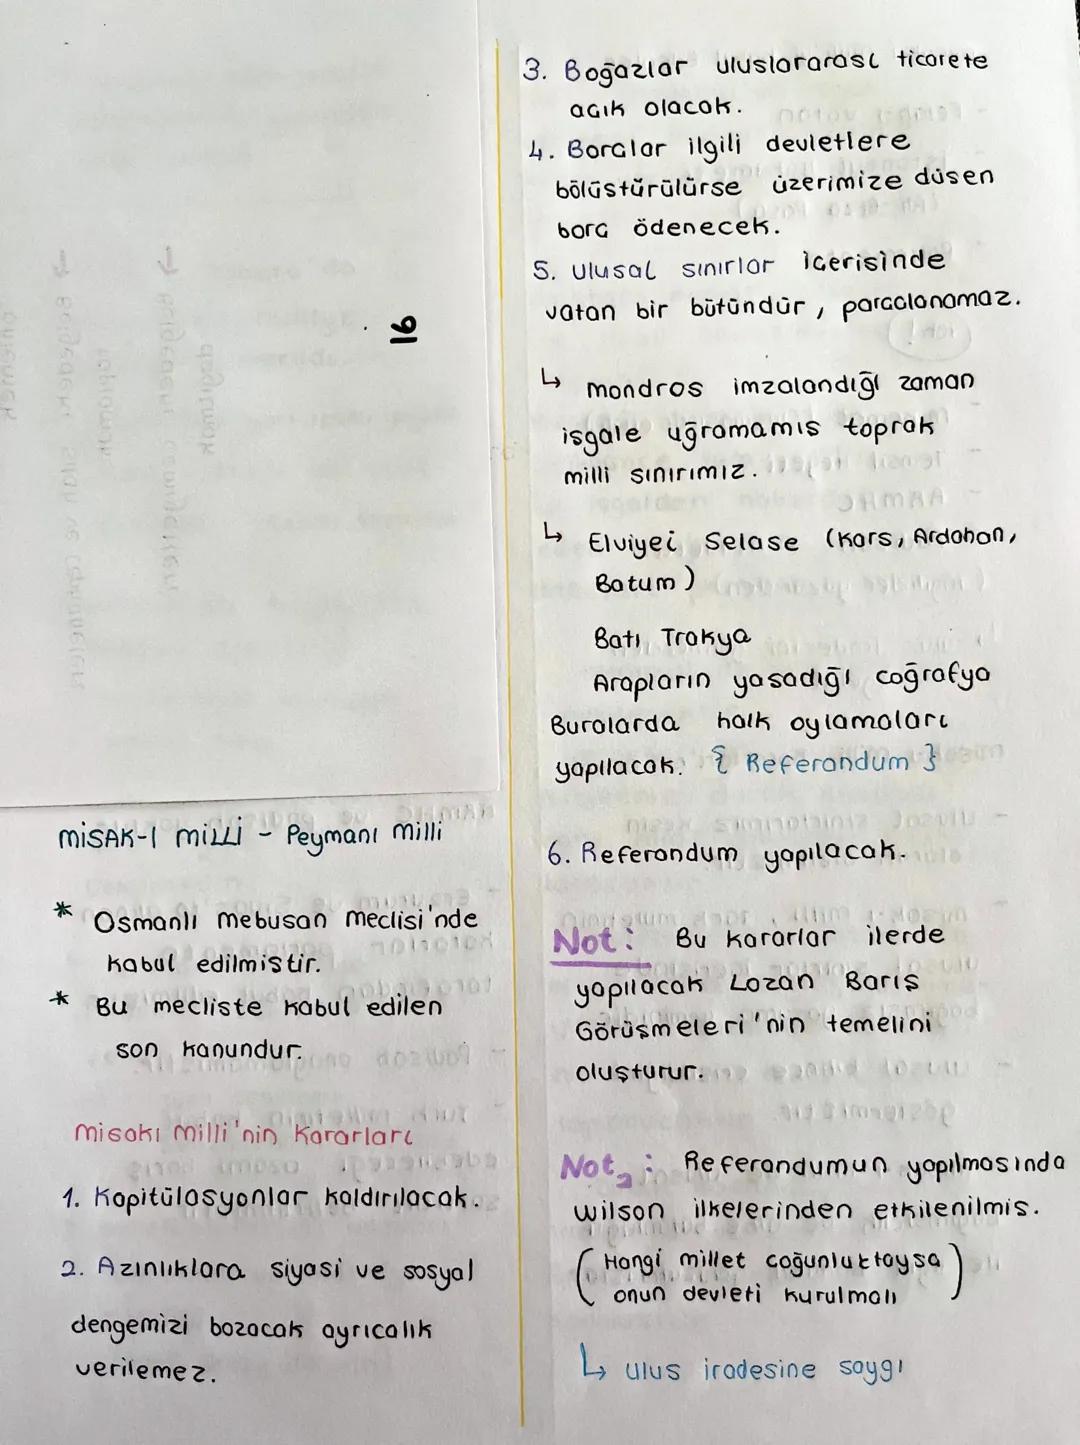 16
MİSAK-I MİLLİ - Peymanı Milli
* Osmanlı mebusan meclisi'nde
kabul edilmiştir.
* Bu mecliste kabul edilen
son kanundur.
Misakı Milli'nin Kararları
1. Kapitülasyonlar kaldırılacak.
2. Azınlıklara siyasi ve sosyal
dengemizi bozacak ayrıcalık
verilemez.
3. Boğazlar uluslararası ticarete
açık olacak.
4. Borçlar ilgili devletlere
bölüştürülürse üzerimize düşen
borç ödenecek.
5. Ulusal sınırlar içerisinde
vatan bir bütündür, parçalanamaz.
↳ mondros imzalandığı zaman
işgale uğramamış toprak
milli sınırımız.
↳ Elviyei Selase (Kars, Ardahan,
Batum)
Batı Trakya
Arapların yaşadığı coğrafya
Buralarda halk oylamaları
yapılacak. { Referandum }
6. Referandum yapılacak.
Not: Bu kararlar ilerde
yapılacak Lozan Barış
Görüşmeleri'nin temelini
oluşturur.
Not2: Referandumun yapılmasında
wilson ilkelerinden etkilenilmiş.
(Hangi millet çoğunluktaysa
onun devleti kurulmalı)
↳ ulus iradesine saygı